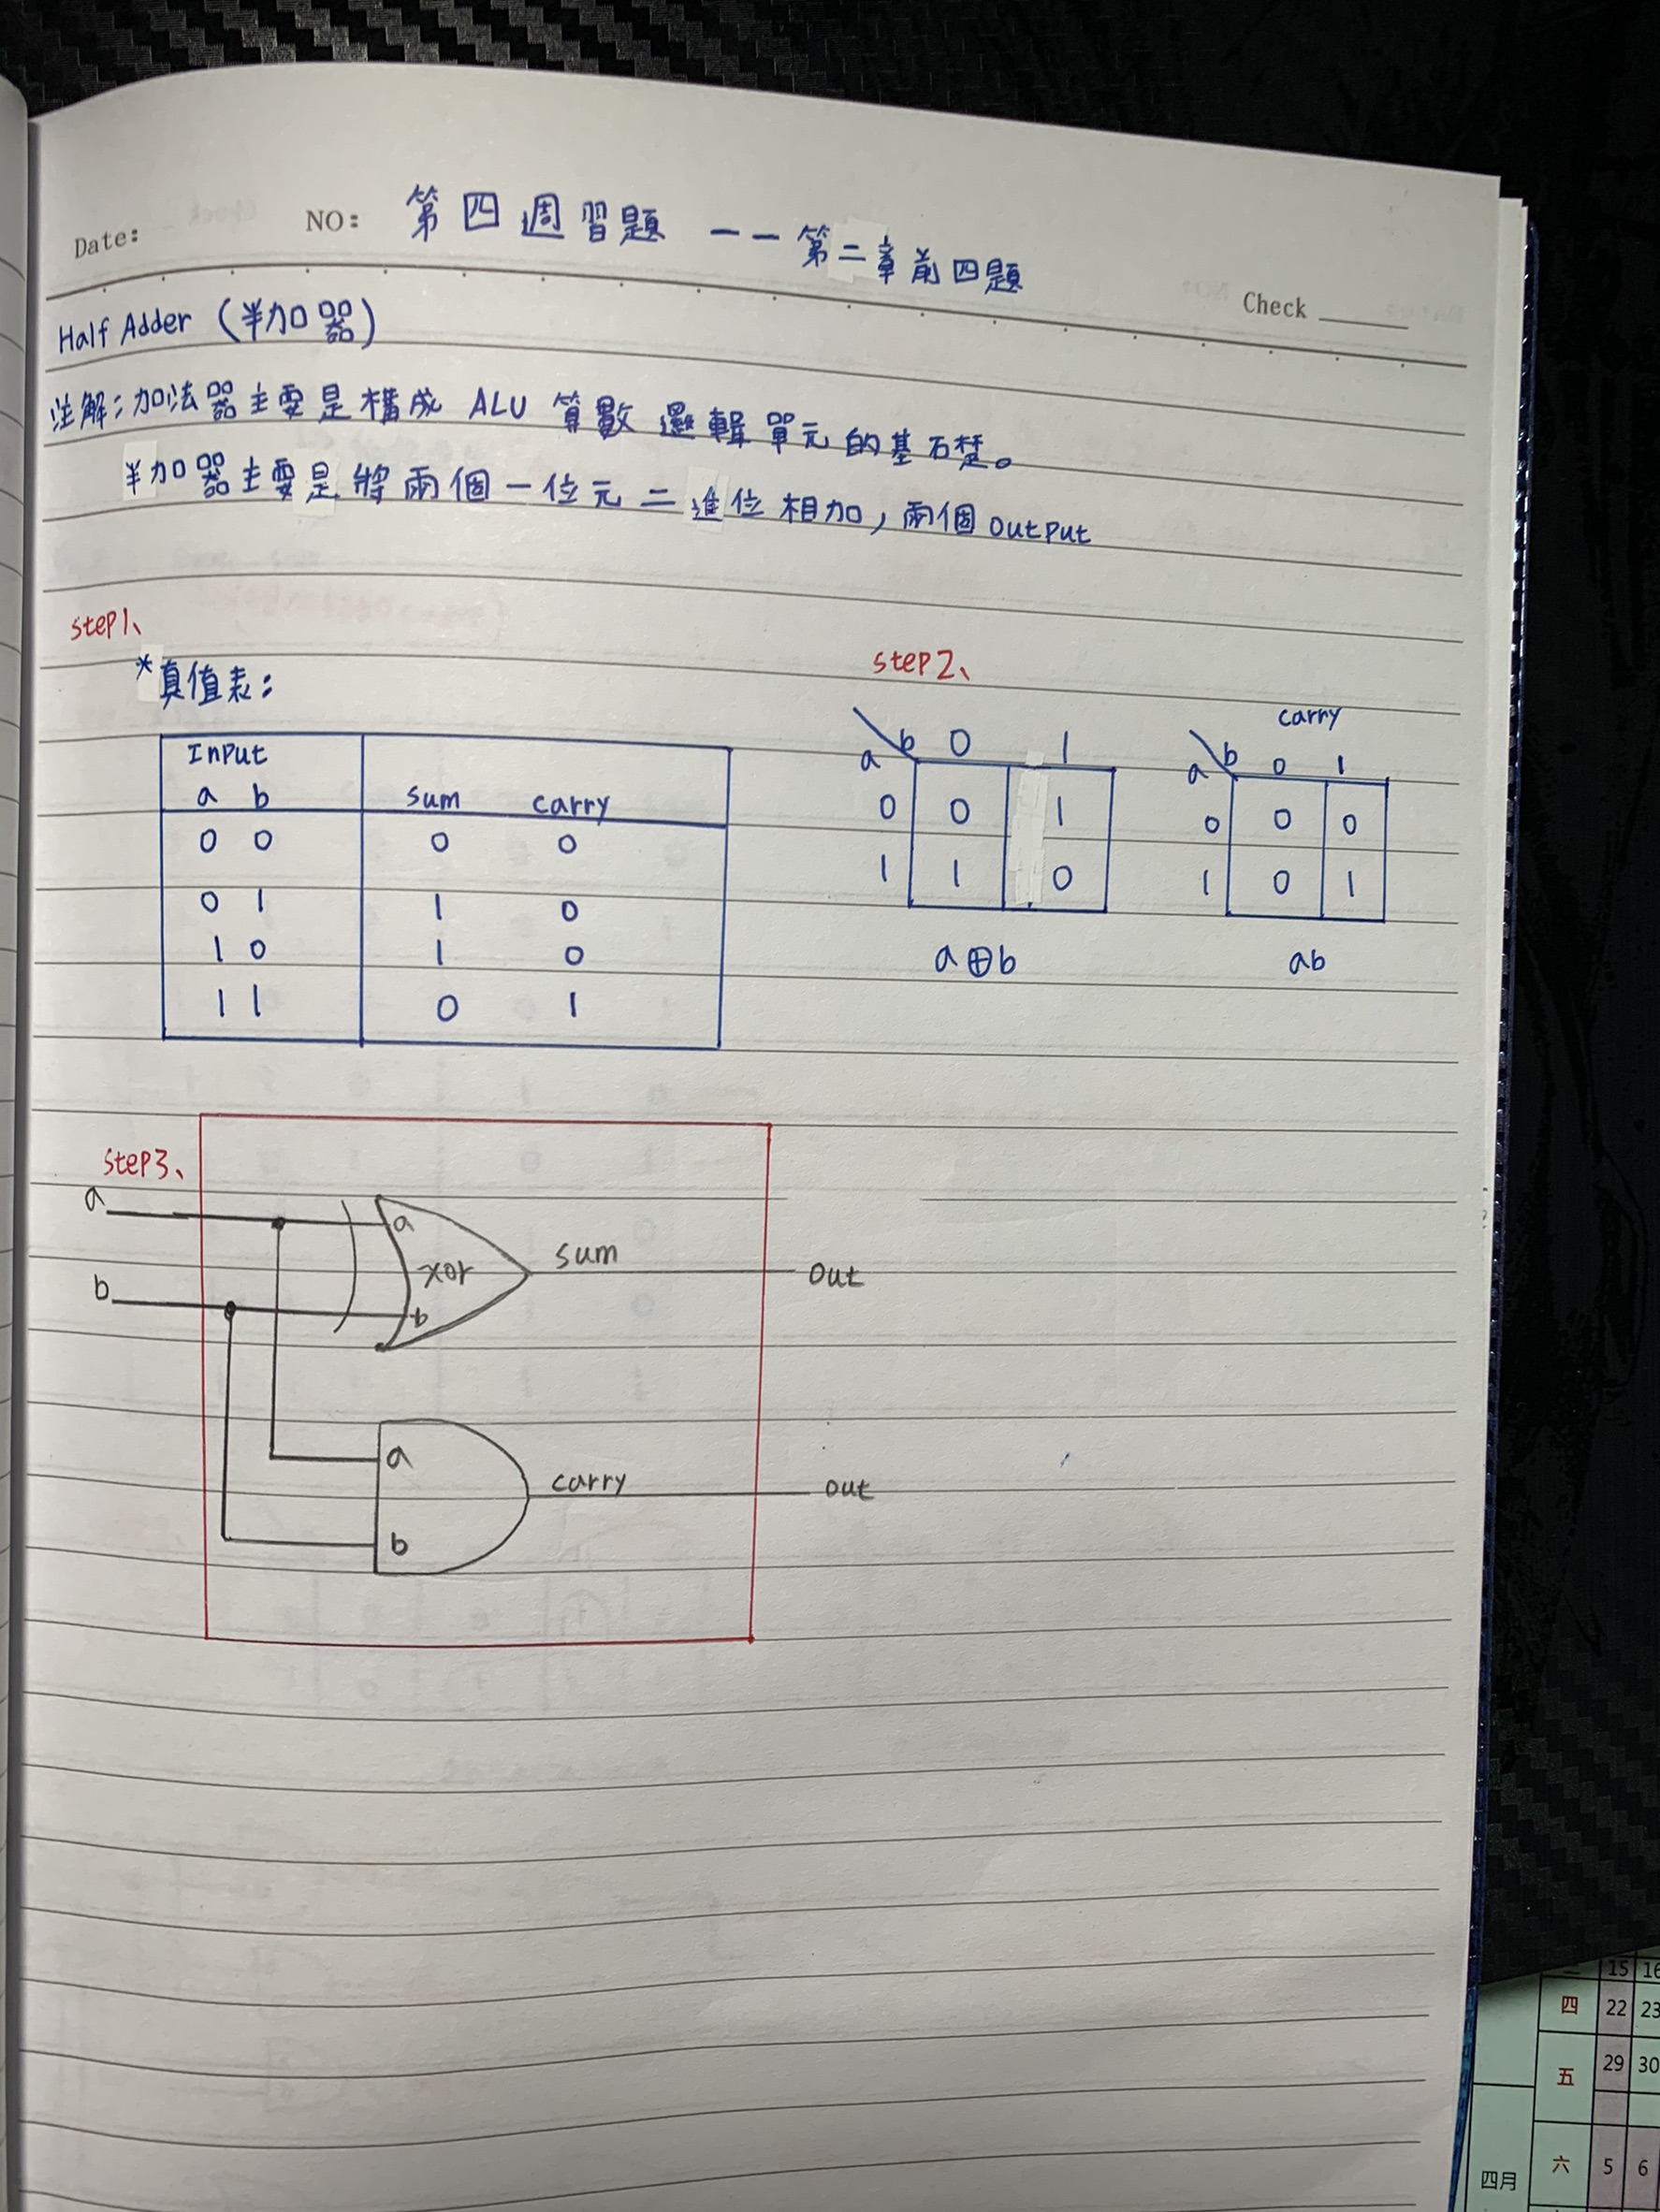 Date:
NO: 第四週習題 -- 第二章前四題
Check
Half Adder (半加器)
注解:加法器主要是構成 ALU 算數邏輯單元的基石楚。
半加器主要是將兩個一位元二進位相加,兩個output
step1、
*真值表:
Input
a b sum carry
0 0 0 0
0 1 1 0
1 0 1 0
1 1 0 1
step2、
a b 0 1
0 0 1
1 1 0
a⊕b
carry
a b 0 1
0 0 0
1 0 1
ab
step3、
a
a
xor
sum
out
b
b
a
carry
out
b
15 16
四 22 23
五 29 30
四月 六 5 6